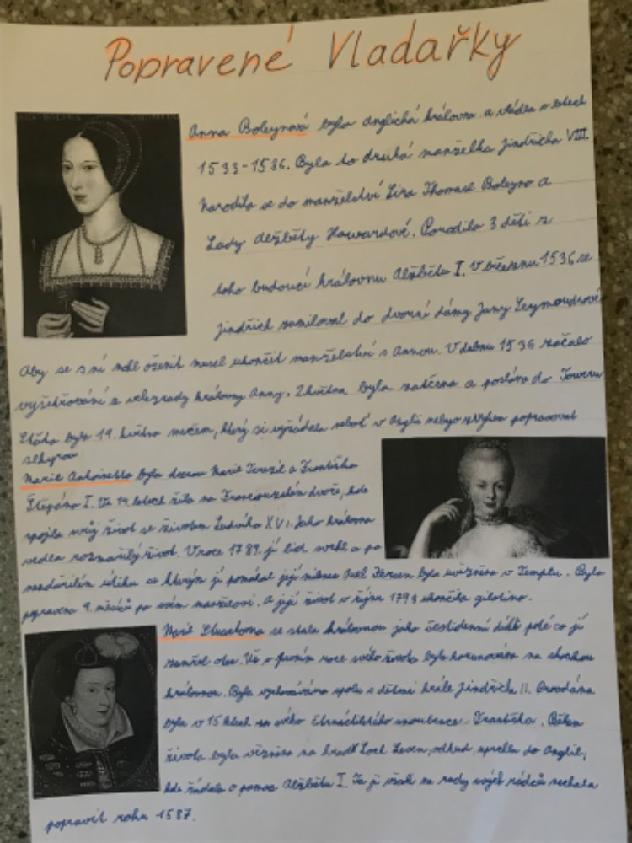 Popravené Vladařky
Anna Boleynová byla anglická královna a vládla v letech
1533-1536. Byla to druhá manželka Jindřicha VIII.
Narodila se do manželství Sira Thomase Boleyna a
Lady Alžběty Howardové. Porodila 3 děti z
toho budoucí královnu Alžbětu I. V březnu 1536 se
Jindřich zamiloval do dvorní dámy Jany Seymourové
Aby se s ní mohl oženit musel ukončit manželství s Annou. V dubnu 1536 začalo
vyšetřování z velezrady královny Anny. 2. května byla zatčena a poslána do Toweru
byla 19. května mečem, který si vyžádala neboť v Anglii nebylo popravovat
Marie Antoinetta byla dcerou Marie Terezie a Františka
Štěpána I. Ve 14 letech žila na Francouzském dvoře, kde
spojila svůj život se životem Ludvíka XVI. Jako královna
vedla rozmařilý život. V roce 1789 jí lid svrhl a po
nezdařilém útěku ve kterým jí pomáhal její milenec Axel Fersen byla uvězněna v Templu. Byla
popravena 9 měsíců po svém manželovi. A její život v říjnu 1793 ukončila gilotina.
Marie Stuartovna se stala královnou jako šestidenní dítě poté co jí
zemřel otec. Už v prvním roce svého života byla korunována na skotskou
královnu. Byla vychovávána spolu s dětmi krále Jindřicha II. Provdána
byla v 15 letech za svého snoubence Františka. Během
života byla vězněna na hradě Loch Leven, odkud uprchla do Anglie,
kde žádala o pomoc Alžbětu I. Ta ji však na rady svých rádců nechala
popravit roku 1587.